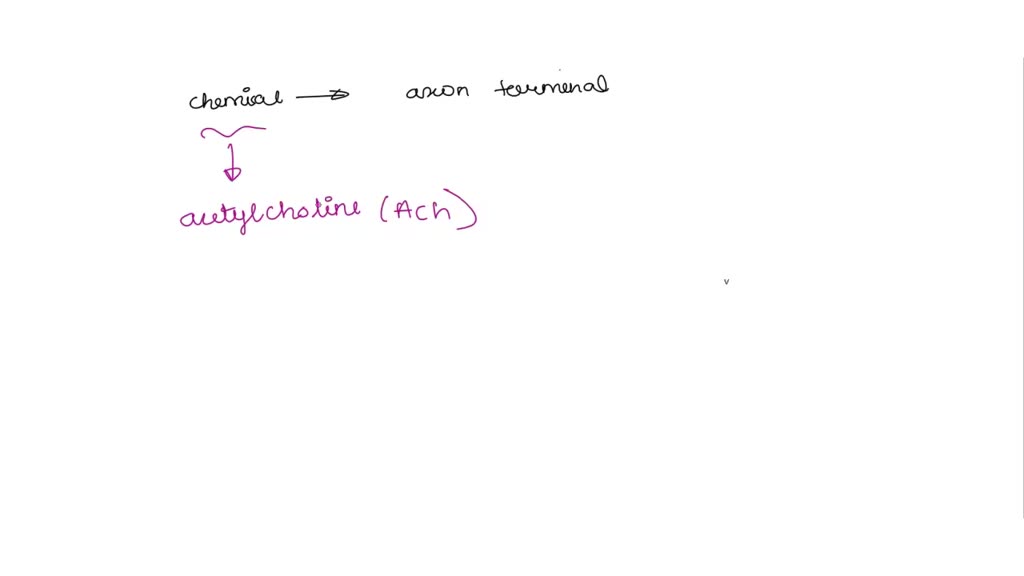 chemical → axon terminal
acetylcholine (Ach)